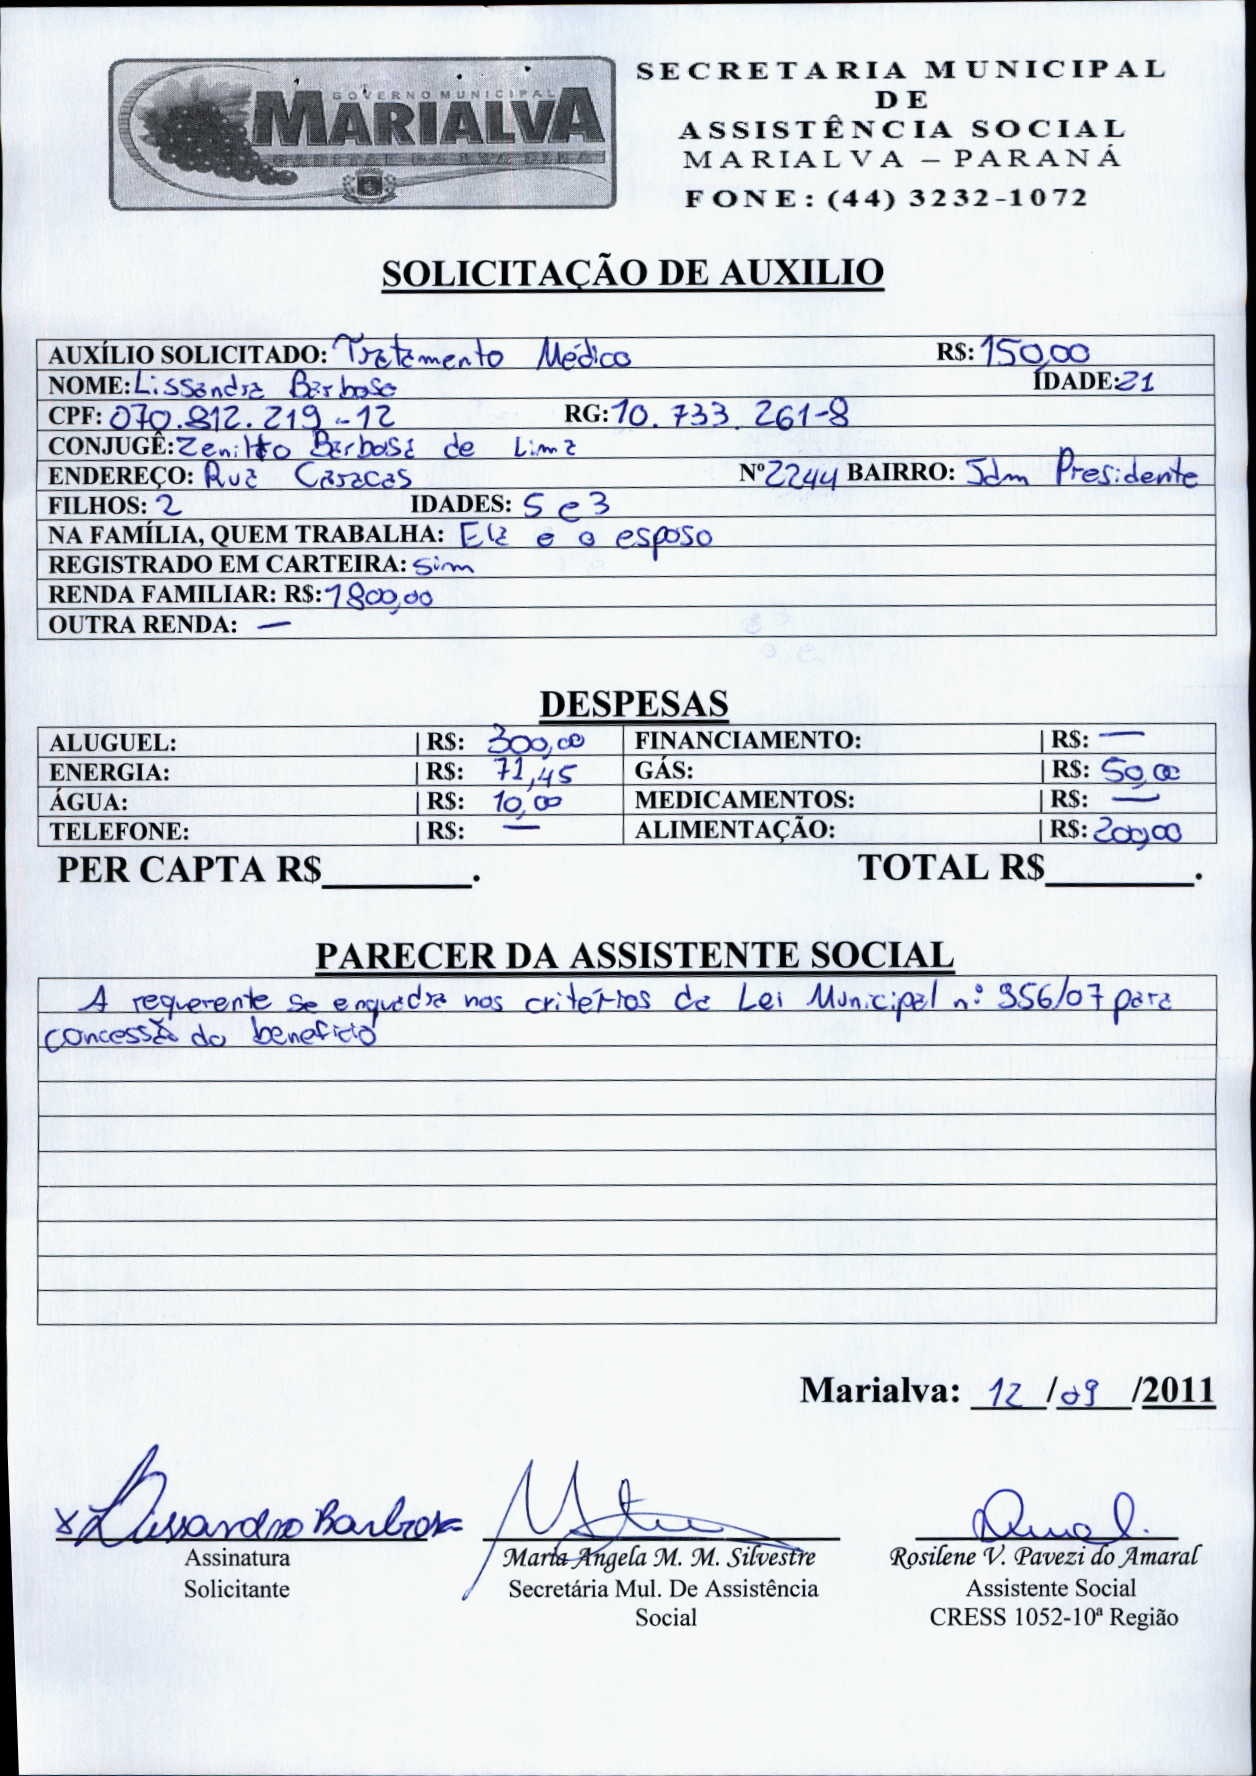 GOVERNO MUNICIPAL
MARIALVA
CAPITAL DA UVA FINA
SECRETARIA MUNICIPAL
DE
ASSISTÊNCIA SOCIAL
MARIALVA – PARANÁ
FONE: (44) 3232-1072
SOLICITAÇÃO DE AUXILIO
AUXÍLIO SOLICITADO: Tratamento Médico R$: 150,00
NOME: Lissandra Barbosa IDADE: 21
CPF: 070.812.219-12 RG: 10.733.261-8
CONJUGÊ: Zenilto Barbosa de Lima
ENDEREÇO: Rua Caracas Nº 2244 BAIRRO: Jdm Presidente
FILHOS: 2 IDADES: 5 e 3
NA FAMÍLIA, QUEM TRABALHA: Ela e o esposo
REGISTRADO EM CARTEIRA: sim
RENDA FAMILIAR: R$: 1800,00
OUTRA RENDA: —
DESPESAS
ALUGUEL: | R$: 300,00 FINANCIAMENTO: | R$: —
ENERGIA: | R$: 71,45 GÁS: | R$: 50,00
ÁGUA: | R$: 10,00 MEDICAMENTOS: | R$: —
TELEFONE: | R$: — ALIMENTAÇÃO: | R$: 200,00
PER CAPTA R$________. TOTAL R$________.
PARECER DA ASSISTENTE SOCIAL
A requerente se enquadra nos critérios da Lei Municipal n.º 956/07 para
concessão do benefício
Marialva: 12 /09 /2011
x Lissandra Barbosa
Assinatura
Solicitante
Maria Angela M. M. Silvestre
Secretária Mul. De Assistência
Social
Rosilene V. Pavezi do Amaral
Assistente Social
CRESS 1052-10ª Região